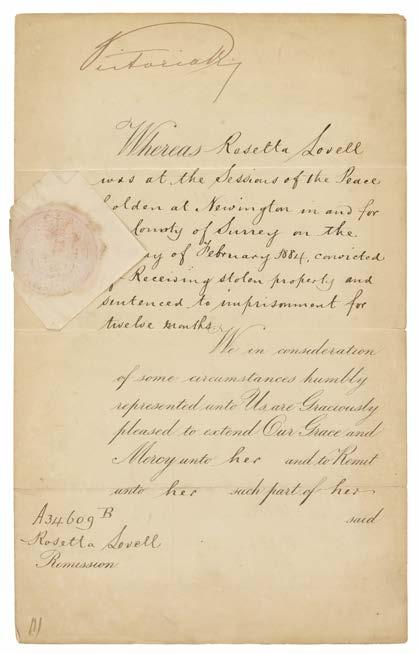 Victoria R
Whereas Rosetta Lovell
was at the Sessions of the Peace
holden at Newington in and for
County of Surrey on the
of February 1884, convicted
Receiving stolen property and
sentenced to imprisonment for
twelve months.
We in consideration
of some circumstances humbly
represented unto Us, are Graciously
pleased to extend Our Grace and
Mercy unto her and to Remit
unto her such part of her
said
A34609B
Rosetta Lovell
Remission